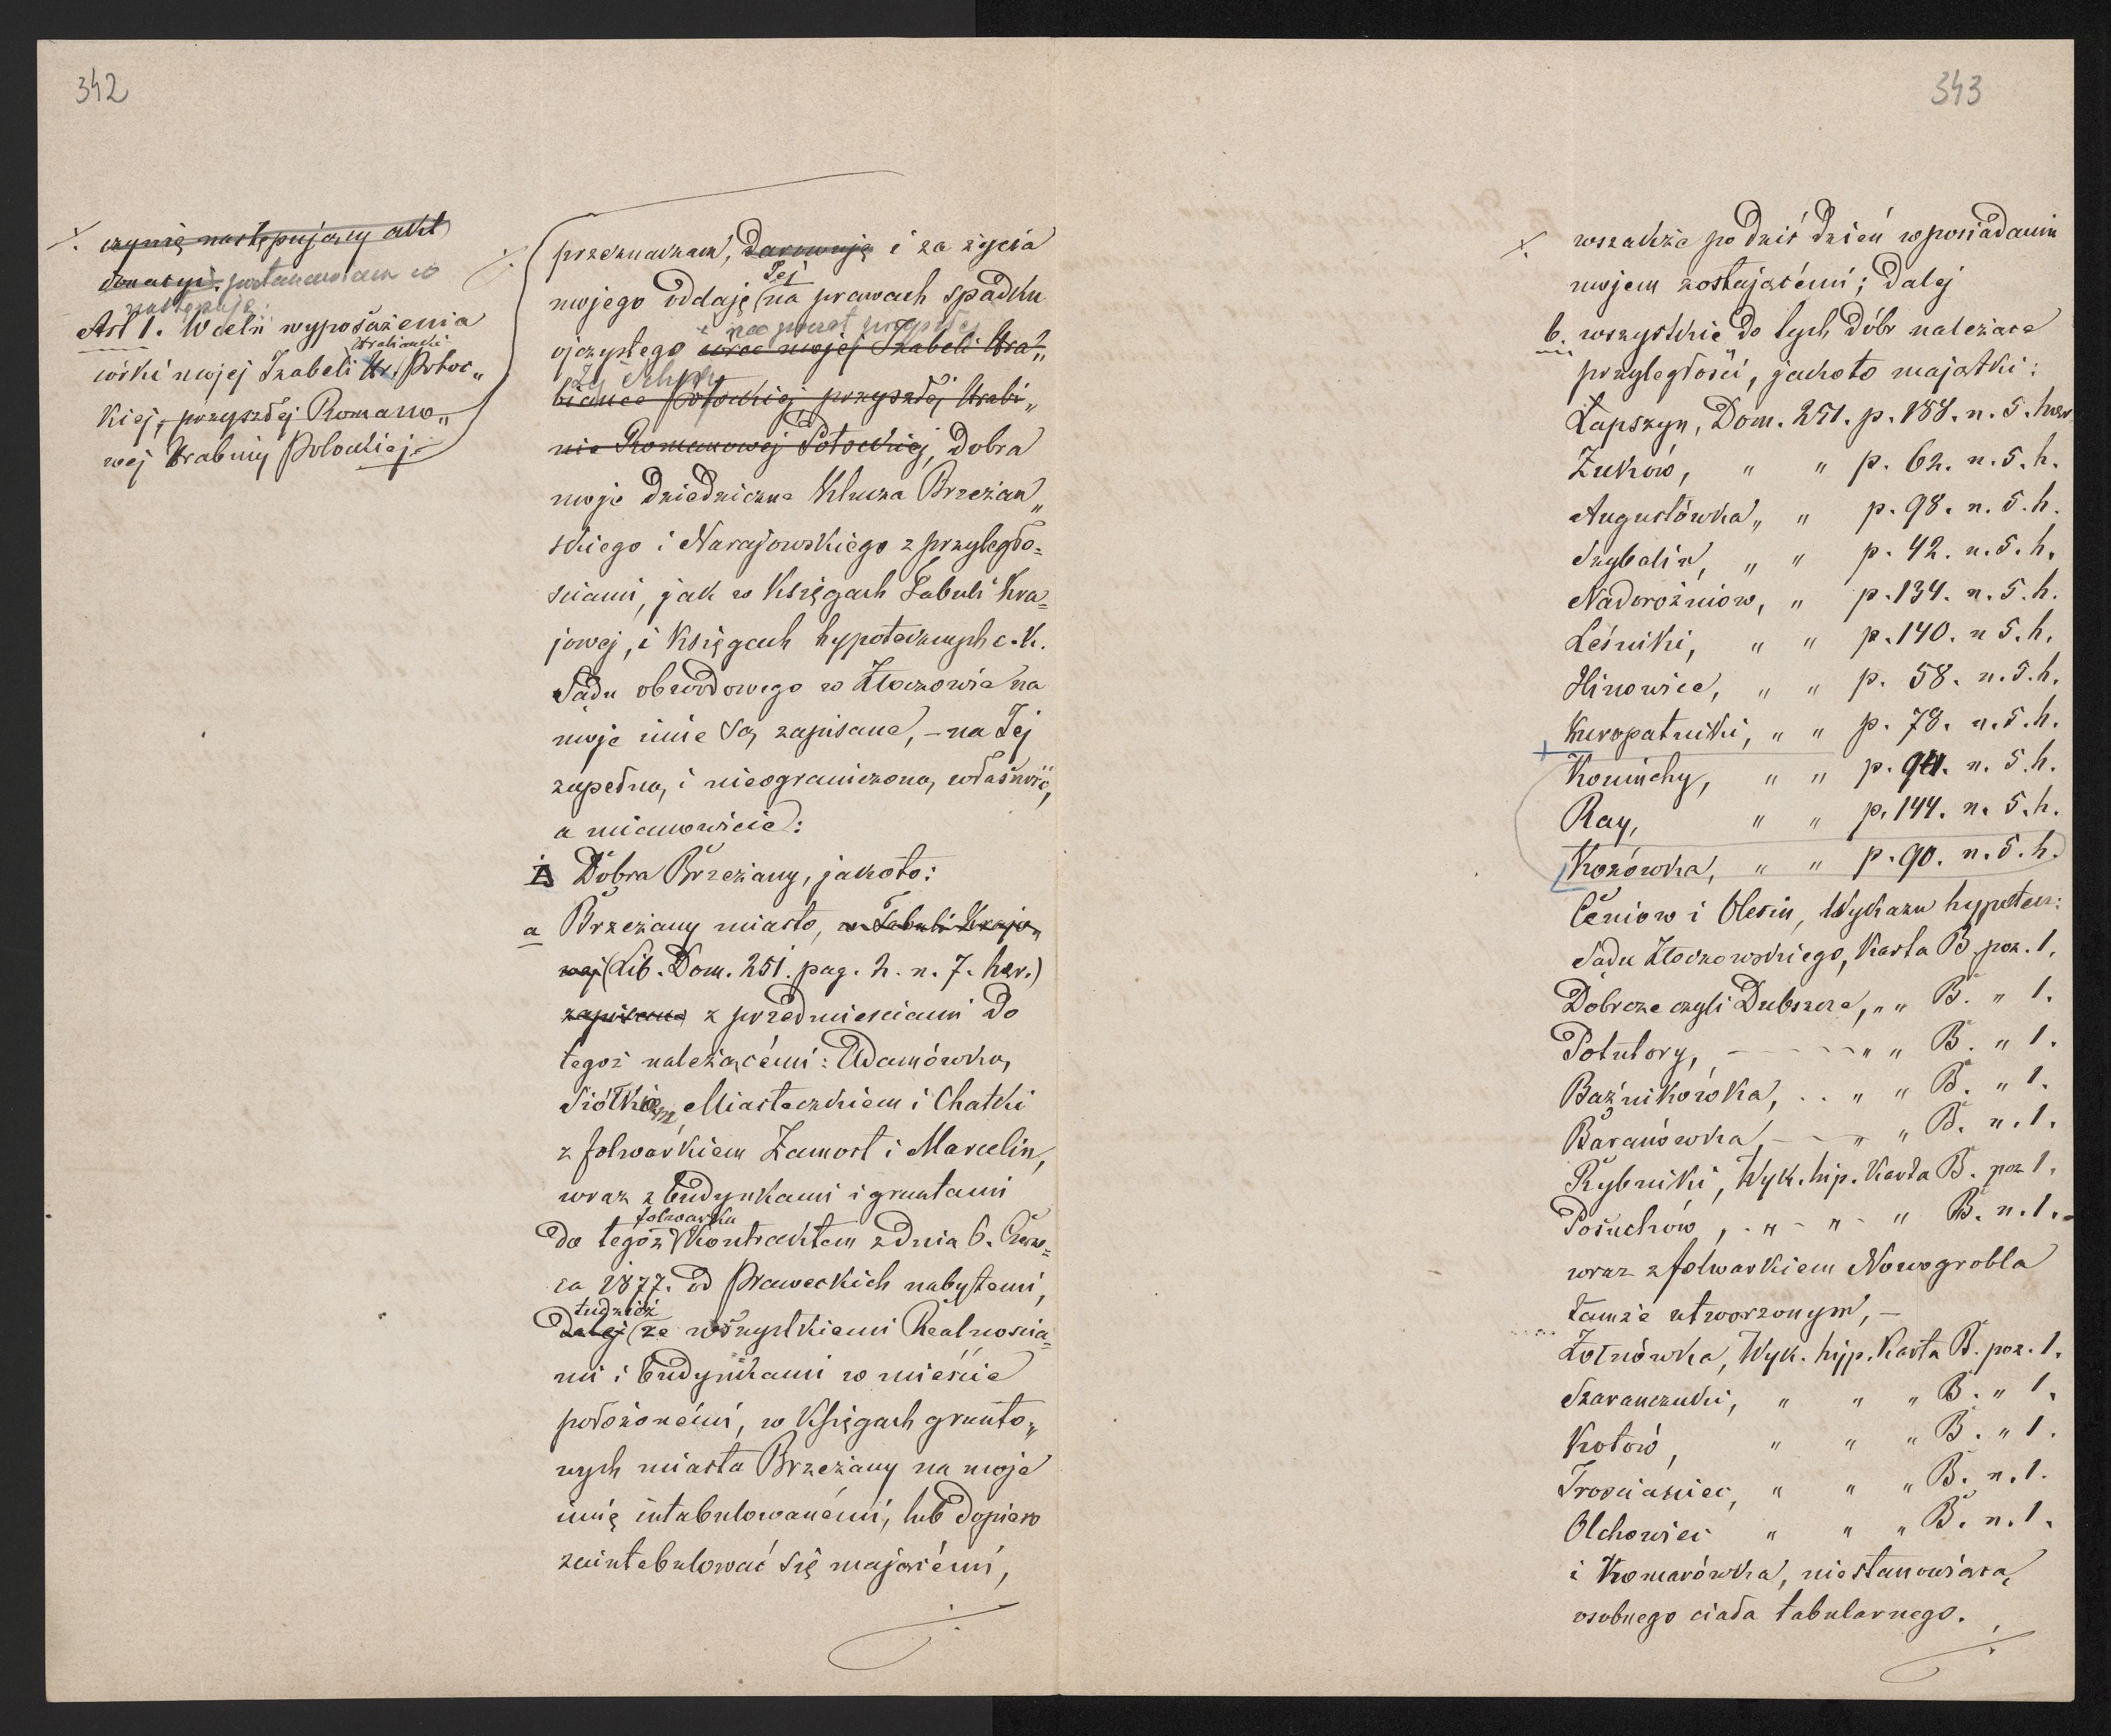 342
343
./. czynię następujący akt
donacyi. postanawiam co
następuje:
Art 1. W celu wyposażenia
Hrabianki
córki mojej Izabeli Hr. Potoc„
kiej, przyszłej Romano„
wej Hrabiny Potockiej.
./. przeznaczam, darowuję i za życia
Jej
mojego oddaję na prawach spadku
i na poczet
ojczystego córce mojej Izabeli Hra„
Jej schedy
biance Potockiej przyszłej Hrabi„
nie Romanowej Potockiej, Dobra
moje dziedziczne Klucza Brzeżan„
skiego i Narajowskiego z przyległo=
ściami, jak w Księgach Tabuli Kra=
jowej, i Księgach hypotecznych c. k.
Sądu obwodowego w Złoczowie na
moje imie są zapisane, – na Jej
zupełną i nieograniczoną własność,
a mianowicie:
A Dobra Brzeżany, jakoto:
a Brzeżany miasto, w Tabuli Krajo„
wej (Lib. Dom. 251. pag. 2. n. 7. her.)
zapisane z przedmieściami do
tegoż należącémi: Adamówką,
Siółkiem, Miasteczkiem i Chatki
z folwarkiem Zamost i Marcelin,
wraz z budynkami i gruntami
folwarku
do tegoż Kontraktem z dnia 6. Czerw=
ca 1877. od Praweckich nabytemi,
tudzież
dalej ze wszystkiemi Realnościa=
mi i budynkami w mieście
położonémi, w Księgach grunto„
wych miasta Brzeżany na moje
imię intabulowanémi, lub dopiero
zaintabulować się mającémi,
./.
./. wszakże po dziś dzień w posiadaniu
mojem zostającémi; dalej
b. wszystkie do tych dóbr należące
przyległości, jakoto majątki:
Łapszyn, Dom. 251. p. 188. n. 5. her
Żuków, „ „ p. 62. n. 5. h.
Augustówka „ „ p. 98. n. 5. h.
Szybalin, „ „ p. 42. n. 5. h.
Nadorożniów, „ p. 134. n. 5. h.
Leśniki, „ „ p. 140. n 5. h.
Hinowice, „ „ p. 58. n. 5. h.
Kuropatniki, „ „ p. 78. n. 5. h.
Koniuchy, „ „ p. 94. n. 5. h.
Ray, „ „ p. 144. n. 5. h.
Kozówka, „ „ p. 90. n. 5. h.
Ceniow i Olesin, Wykazu hypotecz:
Sądu Złoczowskiego, Karta B. poz. 1.
Dobrcze czyli Dubszcze, „ „ B. „ 1.
Potutory, – – – – „ „ B. „ 1.
Baźnikówka, . . „ „ B. „ 1.
Baranówka, – – „ „ B. n. 1.
Rybniki, Wyk. hip. Karta B. poz 1.
Posuchów, . „ – „ – „ B. n. 1.
wraz z folwarkiem Nowogrobla
tamże utworzonym, –
Żołnówka, Wyk. hyp. Karta B. poz. 1.
Szaranczuki, „ „ „ B. „ 1.
Kotów, „ „ „ B. „ 1.
Trościaniec, „ „ „ B. n. 1.
Olchowiec „ „ „ B. n. 1.
i Komarówka, niestanowiąca
osobnego ciała tabularnego.
./.